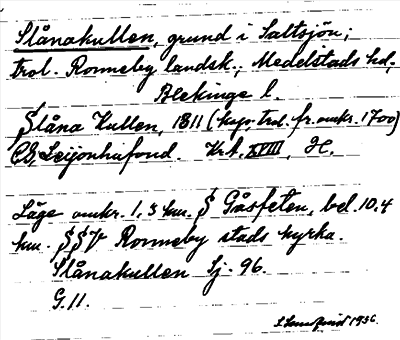 Slånakullen, grund i Saltsjön;
trol. Ronneby landsk.; Medelstads hd;
Blekinge l.
Slåna Kullen, 1811 (kop. trol. fr. omkr. 1700)
CG. Leijonhufond. Krt. XVIII, H.
Läge omkr. 1.5 km. S Gåsfeten, bel. 10.4
km. SSV Ronneby stads kyrka.
Slånakullen Sj. 96.
G.11.
1936.